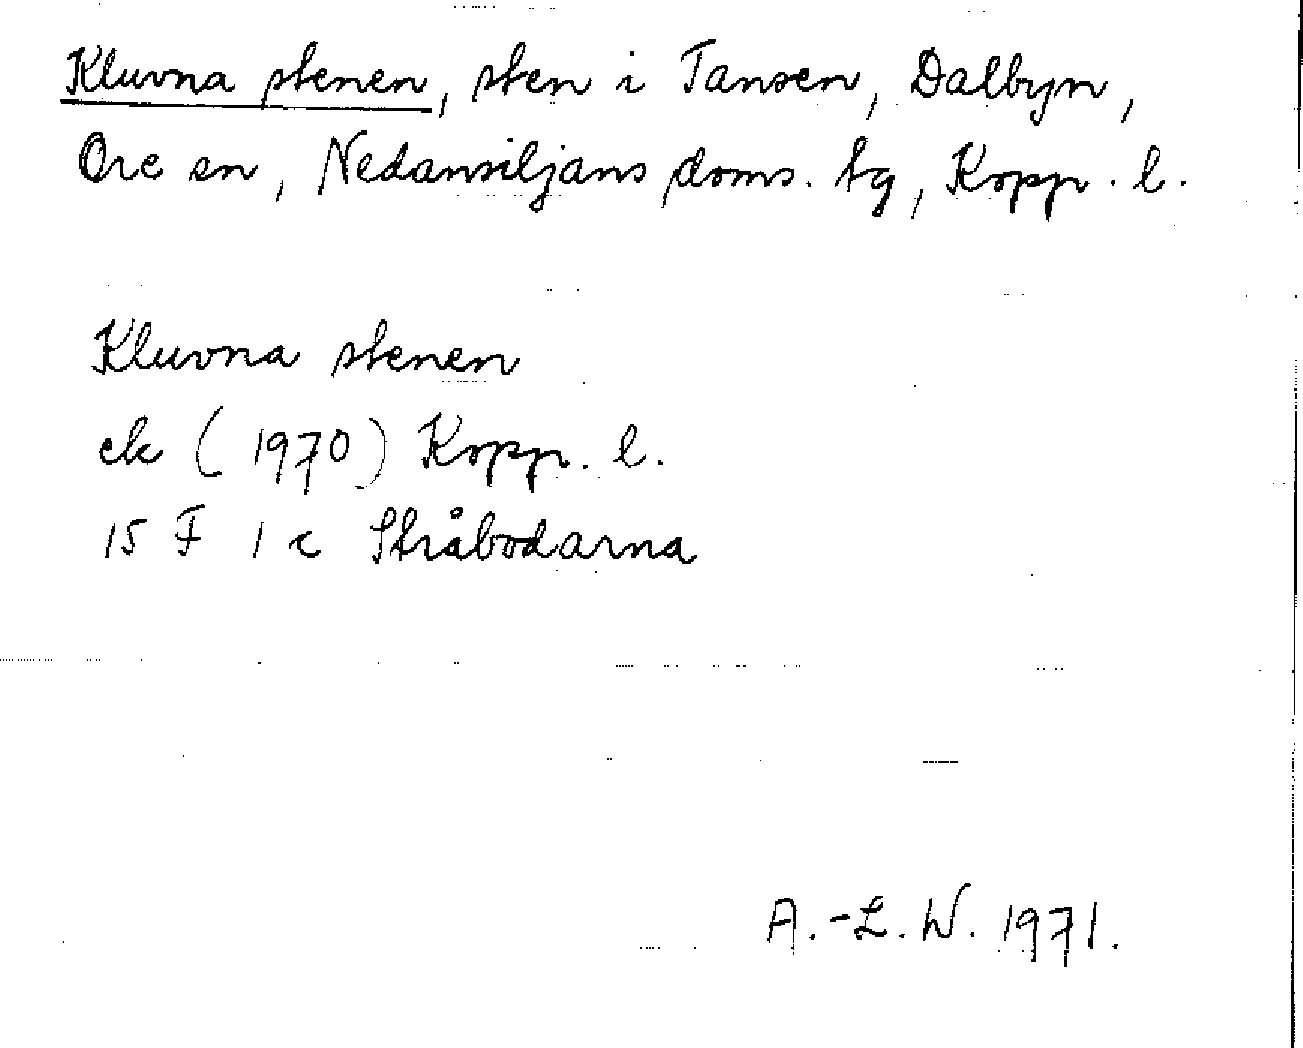 Kluvna stenen, sten i Tansen, Dalbyn,
Ore sn, Nedansiljans doms. tg, Kopp. l.
Kluvna stenen
ek (1970) Kopp. l.
15 F 1 c Stråbodarna
A.-L. W. 1971.